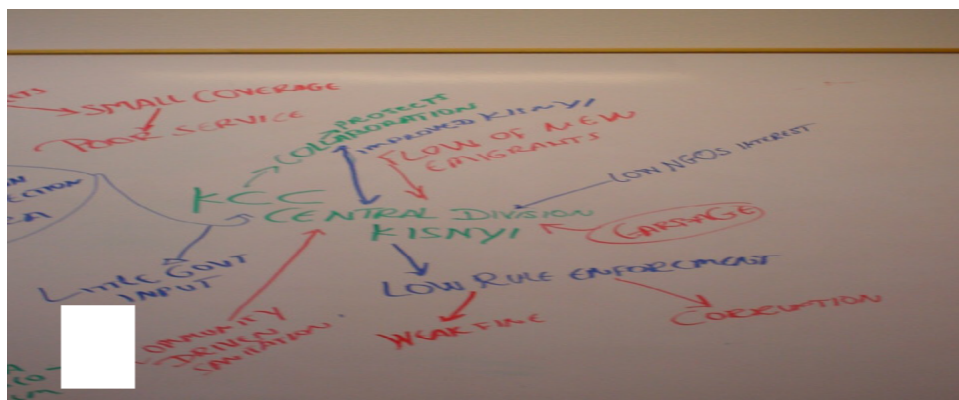 SMALL COVERAGE
POOR SERVICE
PROTECTS
COLLABORATION
IMPROVED KISNYI
FLOW OF NEW
EMIGRANTS
LOW NGOS INTEREST
KCC
CENTRAL DIVISION
KISNYI
GARBAGE
LITTLE GOVT
INPUT
LOW RULE ENFORCEMENT
WEAK FINE
CORRUPTION
OMMUNITY
DRIVEN
SANITATION